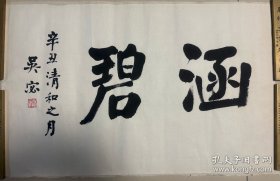 涵碧
辛丑清和之月
吴宓
孔夫子旧书网